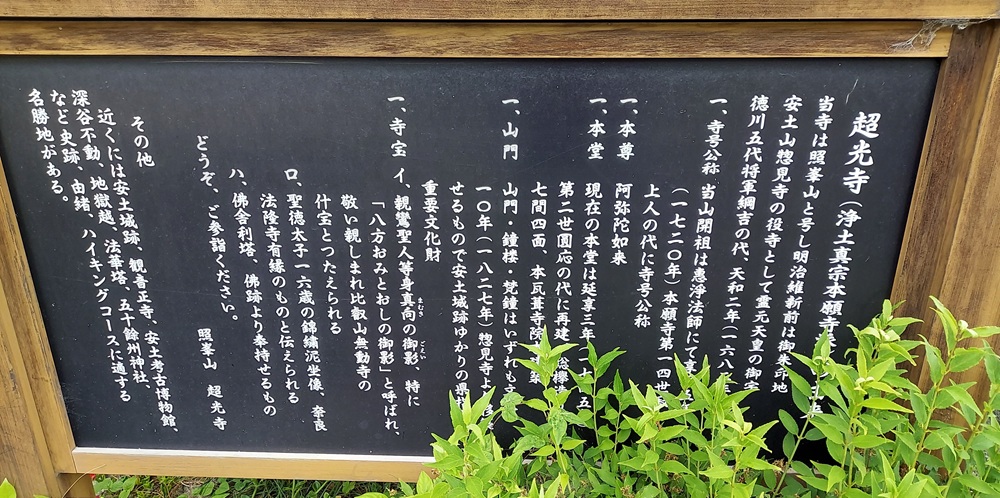 超光寺(浄土真宗本願寺
当寺は照峯山と号し明治維新前は御朱印地
安土山惣見寺の役寺として霊元天皇の御宇
徳川五代将軍綱吉の代、天和二年(一六八
一、寺号公称 当山開祖は恵浄法師にて享
(一七二〇年)本願寺第一四世
上人の代に寺号公称
一、本尊 阿弥陀如来
一、本堂 現在の本堂は延享三年(一七
第二世圓応の代に再建、総欅
七間四面、本瓦葺寺院
一、山門 山門・鐘楼・梵鐘はいずれも文
一〇年(一八二七年)惣見寺よ
せるもので安土城跡ゆかりの県
重要文化財
一、寺宝 イ、親鸞聖人等身真向の御影、特に
まむき ごえい
「八方おみとおしの御影」と呼ばれ、
敬い親しまれ比叡山無動寺の
什宝とつたえられる
ロ、聖徳太子一六歳の錦繍泥坐像、奈良
法隆寺有縁のものと伝えられる
ハ、佛舎利塔、佛跡より奉持せるもの
どうぞ、ご参詣ください。
照峯山 超光寺
その他
近くには安土城跡、観音正寺、安土考古博物館、
深谷不動、地獄越、法華塔、五十餘州神社、
など史跡、由緒、ハイキングコースに適する
名勝地がある。